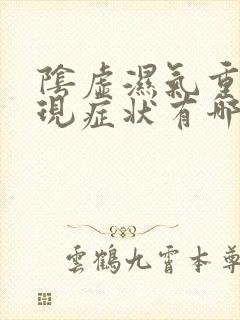 陰虛濕氣重
現症狀有哪
雲鶴九霄本尊